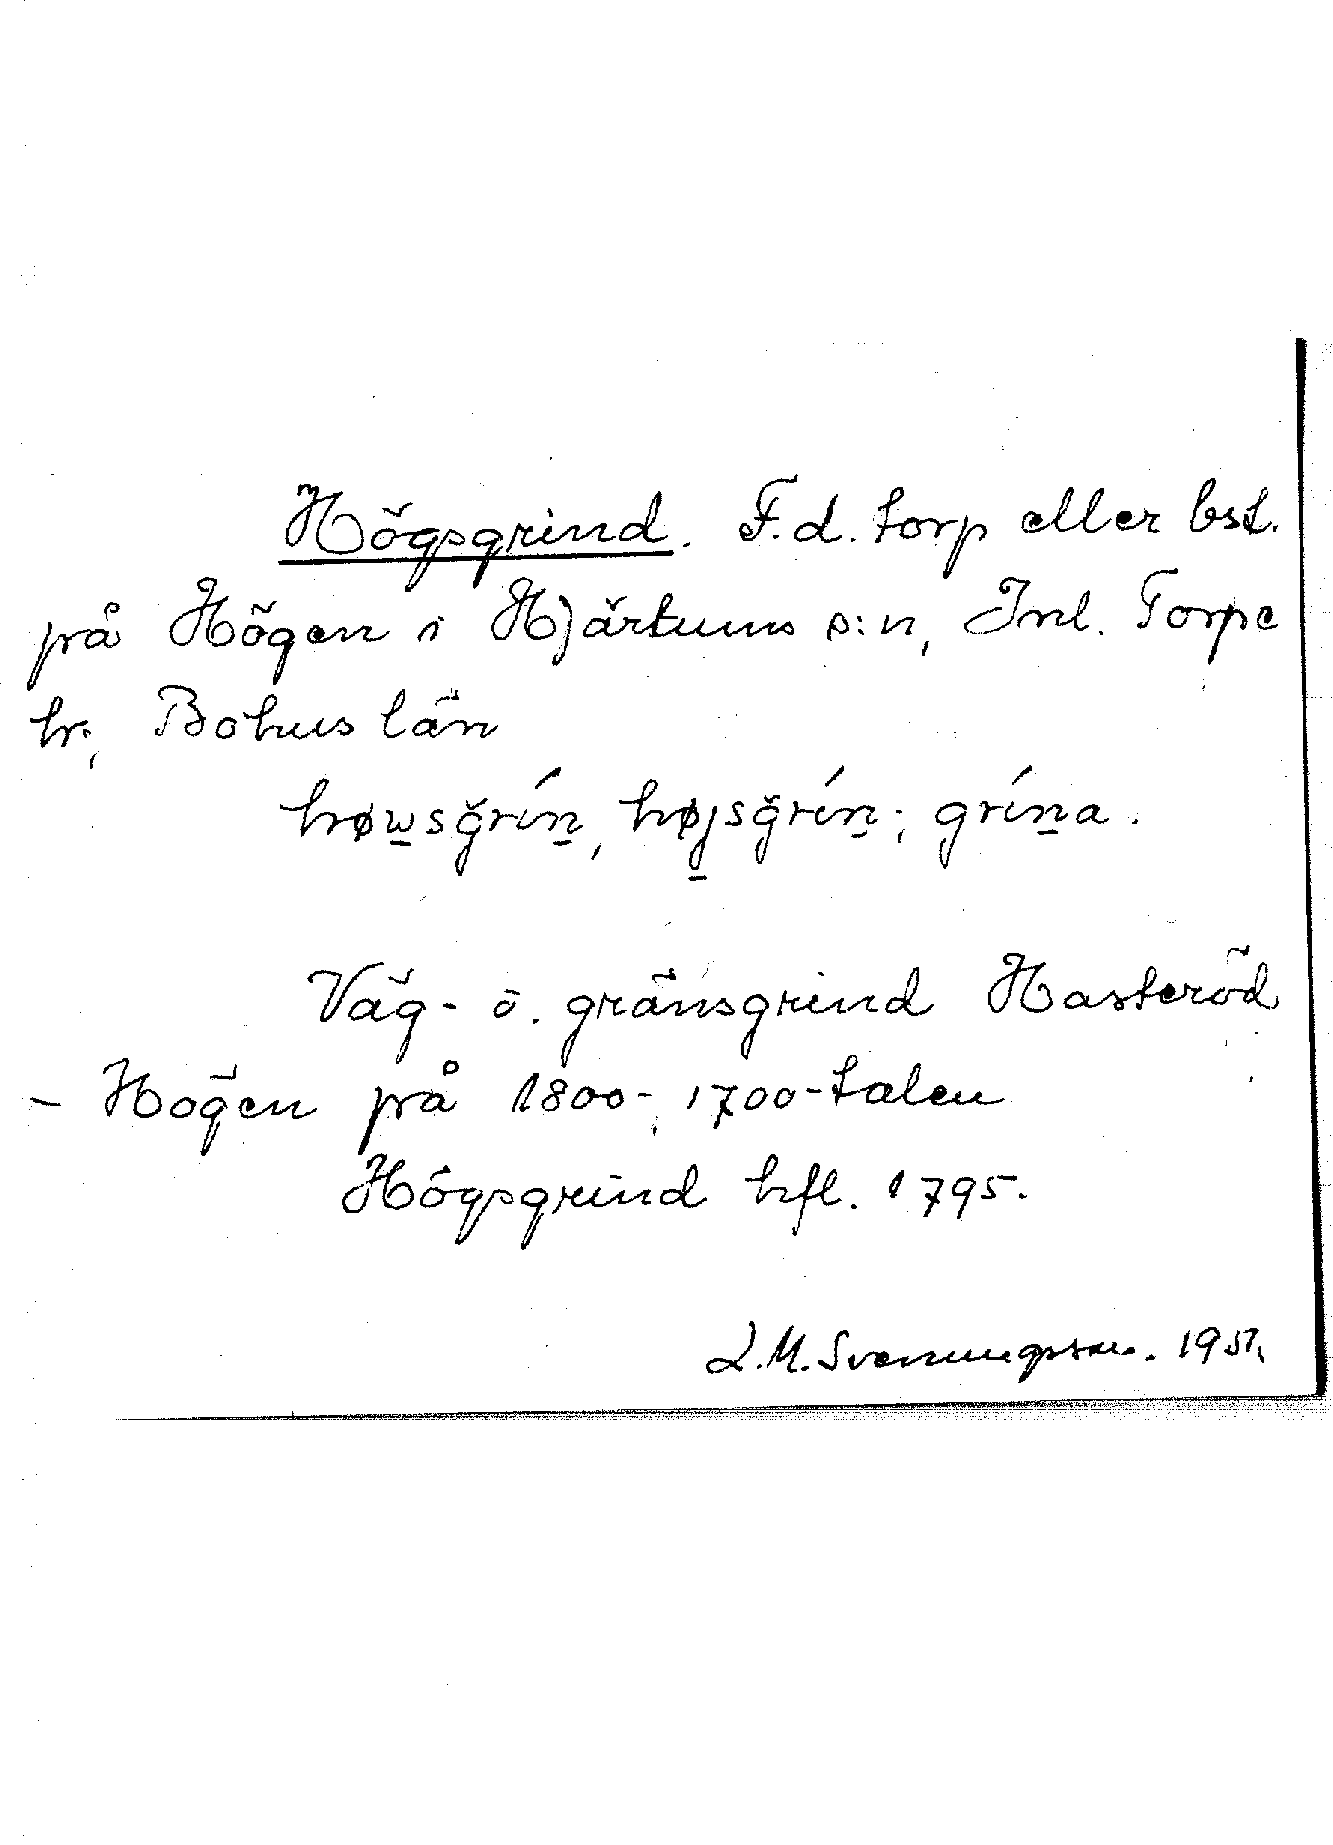 Högsgrind. F.d. torp eller bst.
på Högen i Hjärtums s:n, Inl. Torpe
hr, Bohus län
høwsgrín, højsgrín; grína.
Väg- ö. gränsgrind Hasteröd
- Högen på 1800-, 1700-talen
Högsgrind hfl. 1795.
L.M. Svenungsson. 1951.